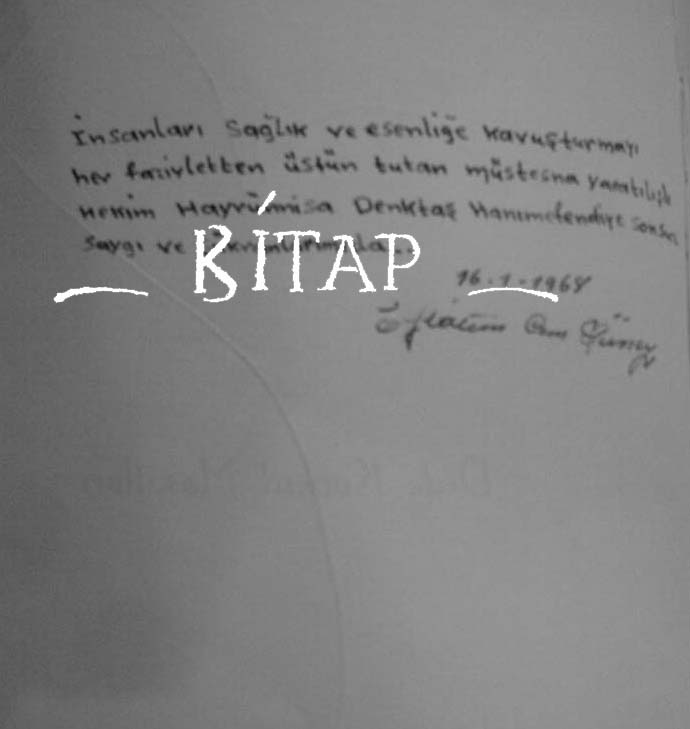 İnsanları sağlık ve esenliğe kavuşturmayı
her faziyletten üstün tutan müstesna yaratılışlı
Hekim Hayrünnisa Denktaş Hanımefendiye sonsuz
saygı ve
KİTAP
16-1-1968
Eflâtun Cem Güney